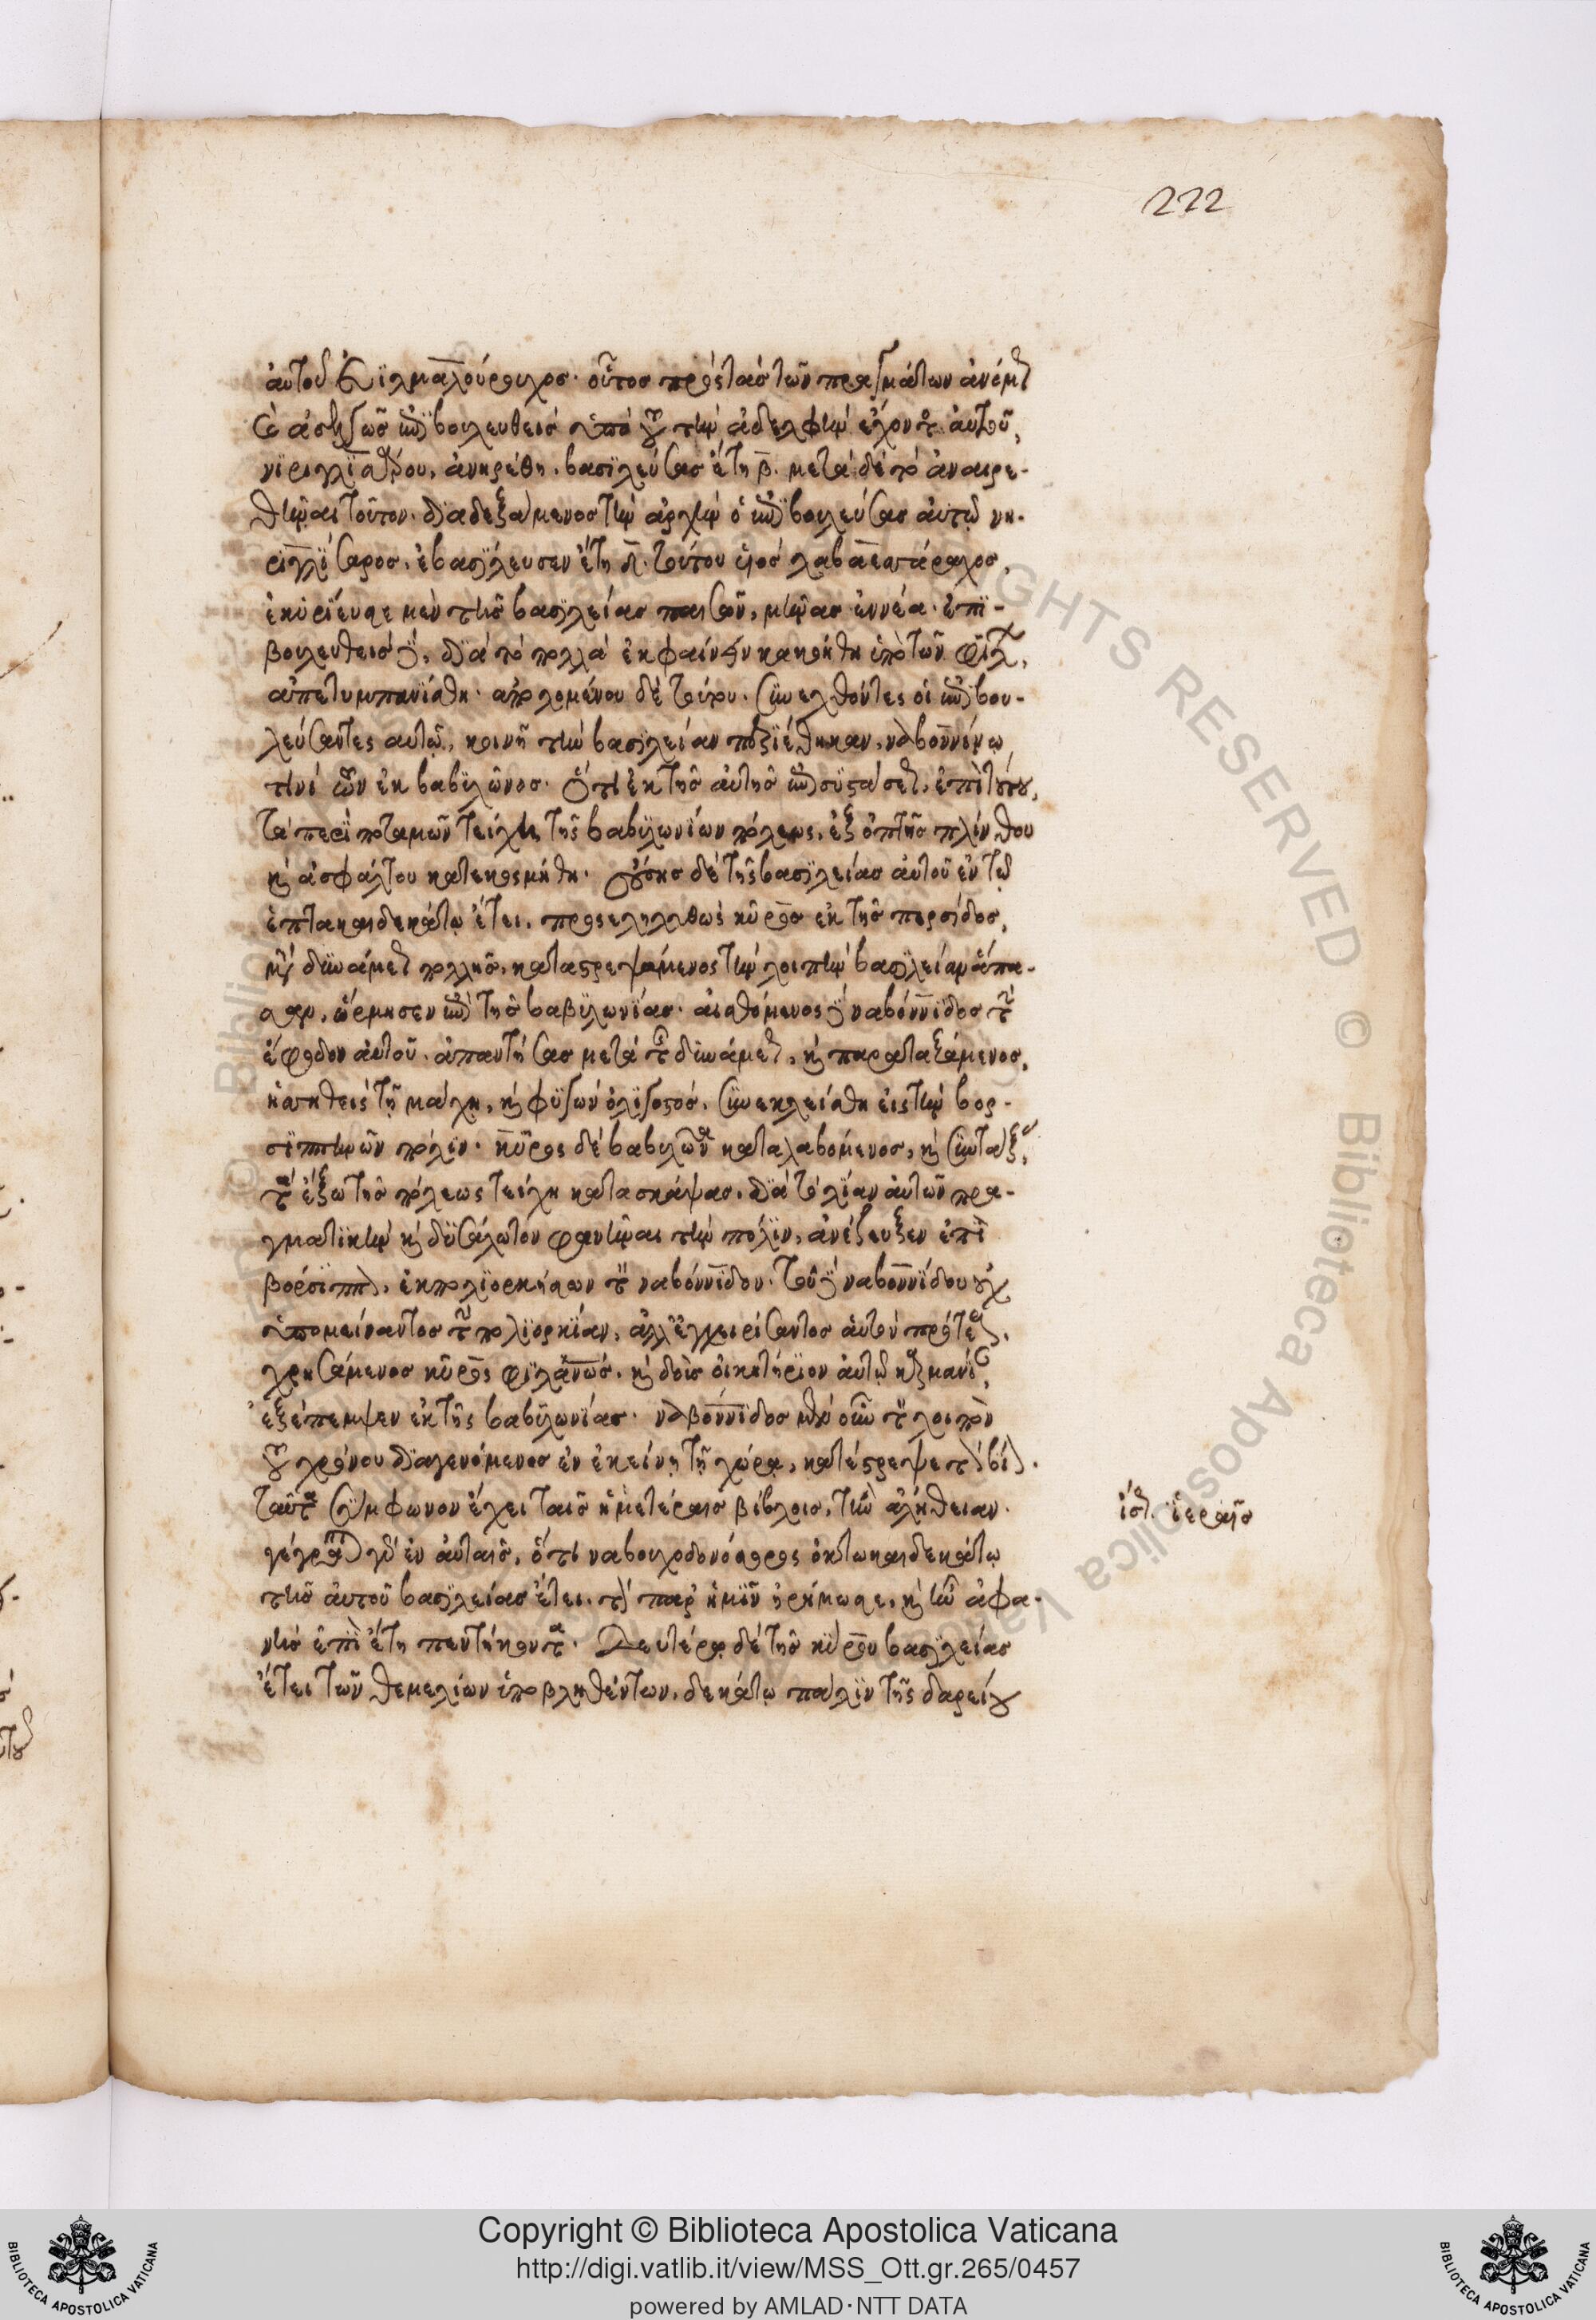 222
αὐτοῦ Εὐϊλμαλούρουχος. οὗτος προστὰς τῶν πραγμάτων ἀνόμως
καὶ ἀσελγῶς ἐπιβουλευθεὶς ὑπὸ τοῦ τὴν ἀδελφὴν ἔχοντος αὐτοῦ,
νϊριγλϊσάρου, ἀνηρέθη. βασϊλεύσας ἔτη β. μετὰ δὲ τὸ ἀναιρε-
θῆναι τοῦτον. δϊαδεξάμενος τὴν ἀρχὴν ὁ ἐπϊβουλεύσας αὐτῷ νη-
ριγλϊσαρος, ἐβασΐλευσεν ἔτη δ. τούτου υἱὸς λαβαεσσάραχος,
ἐκυρΐευσε μὲν τῆς βασϊλείας παῖς ὢν, μῆνας ἐννέα. ἐπϊ-
βουλευθεὶς δὲ, δϊὰ τὸ πολλὰ ἐκφαίνειν κακοήθη ὑπὸ τῶν φίλων,
ἀπετυμπανΐσθη. ἀπολομένου δὲ τούτου. συνελθόντες οἱ ἐπϊβου-
λεύσαντες αὐτῷ, κοινῇ τὴν βασϊλείαν περϊέθηκαν, ναβοννίδῳ
τινὶ τῶν ἐκ βαβϋλῶνος. ὄντι ἐκ τῆς αὐτῆς ἐπισυστάσεως, ἐπὶ τούτου,
τὰ περὶ ποταμῶν τείχη τῆς βαβϋλωνίων πόλεως, ἐξ ὀπτῆς πλίνθου
καὶ ἀσφάλτου κατεκοσμήθη. οὔσης δὲ τῆς βασϊλείας αὐτοῦ ἐν τῷ
ἑπτακαιδεκάτῳ ἔτει, προεξεληλυθὼς κῦρος ἐκ τῆς περσίδος,
μετὰ δϋνάμεως πολλῆς, καταστρεψάμενος τὴν λοιπὴν βασϊλείαν ἅπα-
σαν, ὥρμησεν ἐπὶ τῆς βαβϋλωνΐας. αἰσθόμενος δὲ ναβόννϊδος τὴν
ἔφοδον αὐτοῦ. ἀπαντήσας μετὰ τῆς δυνάμεως, καὶ παραταξάμενος,
ἡττηθεὶς τῇ μάχῃ, καὶ φϋγὼν ὀλϊγοστὸς, συνεκλείσθη εἰς τὴν βορ-
σϊππηνῶν πόλϊν. κῦρος δὲ βαβυλῶνα καταλαβόμενος, καὶ συντάξας,
τὰ ἔξω τῆς πόλεως τείχη κατασκάψαι, δϊὰ τὸ λΐαν αὐτῶν πρα-
γματϊκὴν καὶ δϋσάλωτον φανῆναι τὴν πόλϊν, ἀνέζευξεν ἐπὶ
βορσΐππων, ἐκπολϊορκήσων τὸν ναβόννϊδον. τοῦ δὲ ναβοννΐδου οὐχ
ὑπομείναντος τὴν πολϊορκΐαν, ἀλλ' ἐγχειρΐσαντος αὑτὸν πρότερον,
χρησάμενος κῦρος φϊλανως, καὶ δοὺς οἰκητήρϊον αὐτῷ καρμανΐαν,
ἐξέπεμψεν ἐκ τῆς βαβϋλωνΐας. ναβόννϊδος μὲν οὖν τὸ λοιπὸν
τοῦ χρόνου δϊαγενόμενος ἐν ἐκείνῃ τῇ χώρᾳ, κατέστρεψε τὸν βίον.
ταῦτα σύμφωνον ἔχει ταῖς ἡμετέραις βίβλοις, τὴν ἀλήθειαν.
γέγραπται γὰρ ἐν αὐταῖς, ὅτι ναβουχοδονόσορος ὀκτωκαιδεκάτῳ
τῆς αὐτοῦ βασϊλείας ἔτει. τὸν παρ' ἡμῖν ἠρήμωσε, καὶ ἦν ἀφα-
νὴς ἐπὶ ἔτη πεντήκοντα. Δευτέρῳ δὲ τῆς κύρου βασϊλείας
ἔτει τῶν θεμελίων ὑποβληθέντων, δεκάτῳ πάλϊν τῆς δαρείου
ἱεραῖς
Copyright © Biblioteca Apostolica Vaticana
http://digi.vatlib.it/view/MSS_Ott.gr.265/0457
powered by AMLAD·NTT DATA
BIBLIOTECA APOSTOLICA VATICANA
BIBLIOTECA APOSTOLICA VATICANA